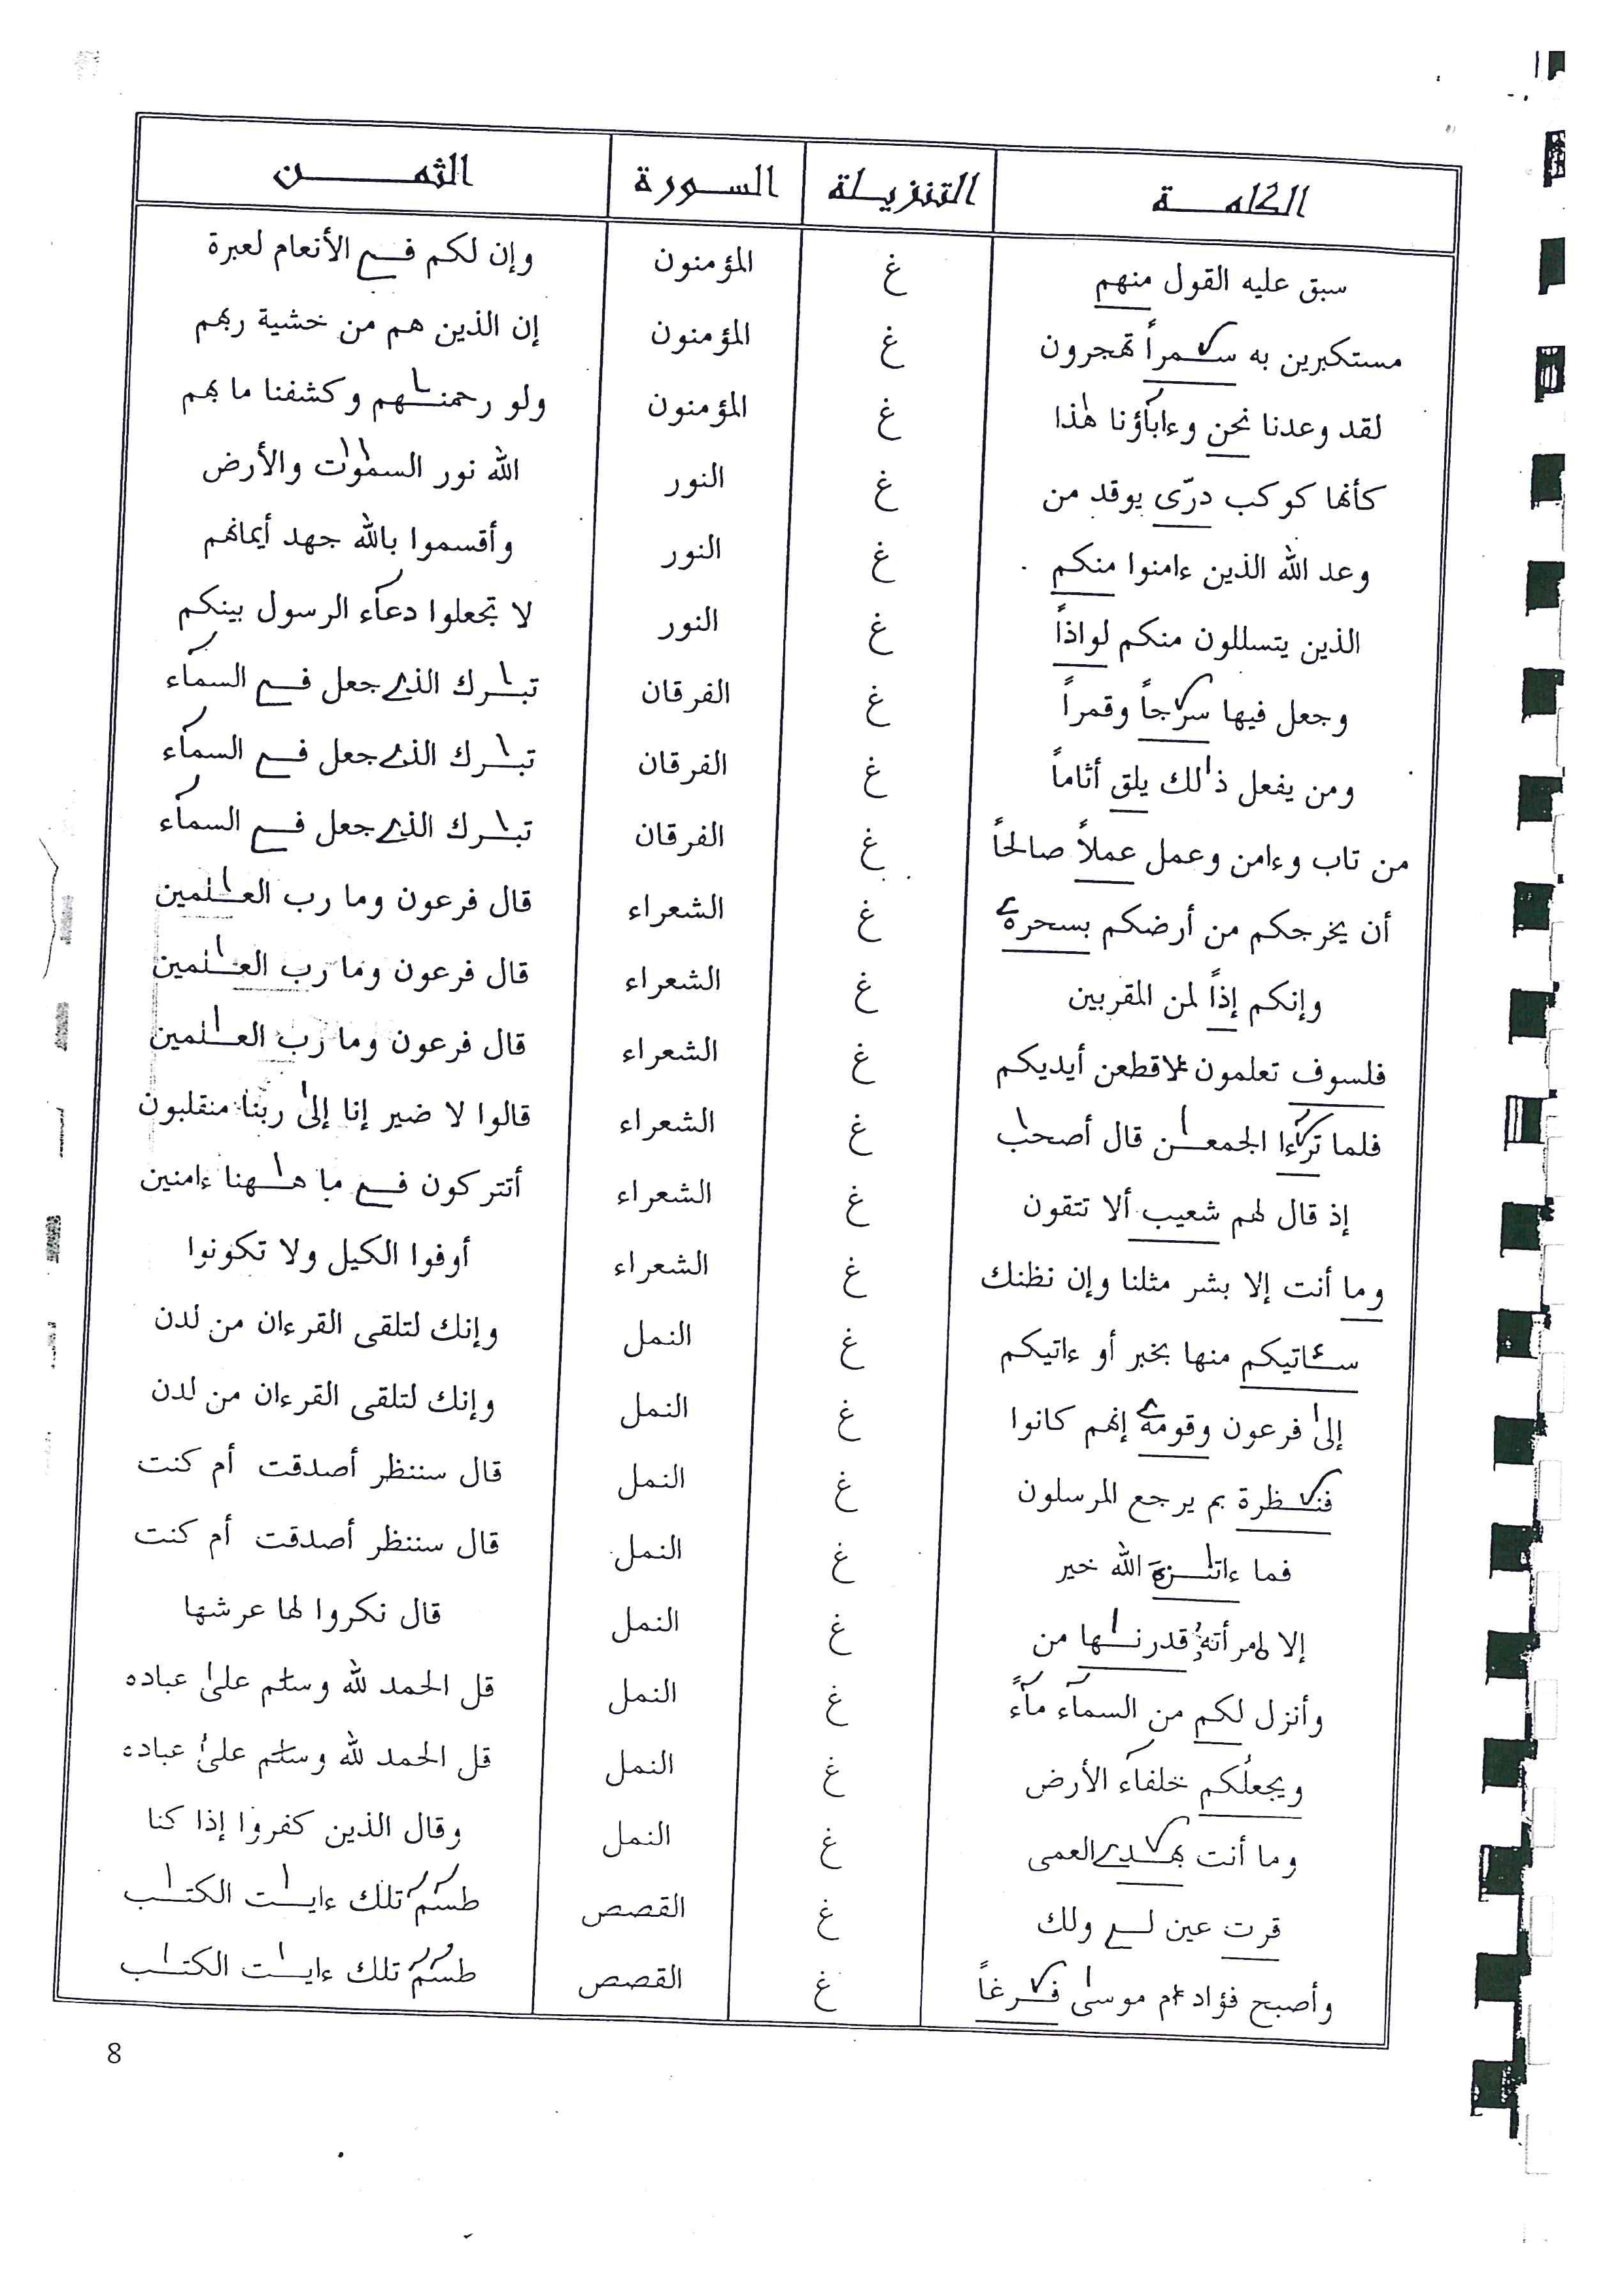 الكلمة التنزيلة السورة الثمن
سبق عليه القول منهم غ المؤمنون وإن لكم في الأنعام لعبرة
مستكبرين به سٰمراً تهجرون غ المؤمنون إن الذين هم من خشية ربهم
لقد وعدنا نحن وءابآؤنا هٰذا غ المؤمنون ولو رحمنٰهم وكشفنا ما بهم
كأنها كوكب درّى يوقد من غ النور الله نور السمٰوٰت والأرض
وعد الله الذين ءامنوا منكم غ النور وأقسموا بالله جهد أيمانهم
الذين يتسللون منكم لواذاً غ النور لا تجعلوا دعآء الرسول بينكم
وجعل فيها سرٰجاً وقمراً غ الفرقان تبٰرك الذي جعل في السمآء
ومن يفعل ذٰلك يلق أثاماً غ الفرقان تبٰرك الذي جعل في السمآء
من تاب وءامن وعمل عملاً صالحاً غ الفرقان تبٰرك الذي جعل في السمآء
أن يخرجكم من أرضكم بسحرهے غ الشعراء قال فرعون وما رب العٰلمين
وإنكم إذاً لمن المقربين غ الشعراء قال فرعون وما رب العٰلمين
فلسوف تعلمون لأقطعن أيديكم غ الشعراء قال فرعون وما رب العٰلمين
فلما ترٰٓءا الجمعٰن قال أصحٰب غ الشعراء قالوا لا ضير إنا إلىٰ ربنا منقلبون
إذ قال لهم شعيب ألا تتقون غ الشعراء أتتركون في ما هٰهنا ءامنين
وما أنت إلا بشر مثلنا وإن نظنك غ الشعراء أوفوا الكيل ولا تكونوا
سـٔاتيكم منها بخبر أو ءاتيكم غ النمل وإنك لتلقى القرءان من لدن
إلىٰ فرعون وقومهے إنهم كانوا غ النمل وإنك لتلقى القرءان من لدن
فنٰظرة بم يرجع المرسلون غ النمل قال سننظر أصدقت أم كنت
فما ءاتىٰنۦ الله خير غ النمل قال سننظر أصدقت أم كنت
إلا امرأتهۥ قدرنٰها من غ النمل قال نكروا لها عرشها
وأنزل لكم من السمآء مآءً غ النمل قل الحمد لله وسلٰم علىٰ عباده
ويجعلُكم خلفآء الأرض غ النمل قل الحمد لله وسلٰم علىٰ عباده
وما أنت بهٰدي العمى غ النمل وقال الذين كفروا إذا كنا
قرت عين لي ولك غ القصص طسٓمٓ تلك ءايٰت الكتٰب
وأصبح فؤاد أم موسىٰ فٰرغاً غ القصص طسٓمٓ تلك ءايٰت الكتٰب
8